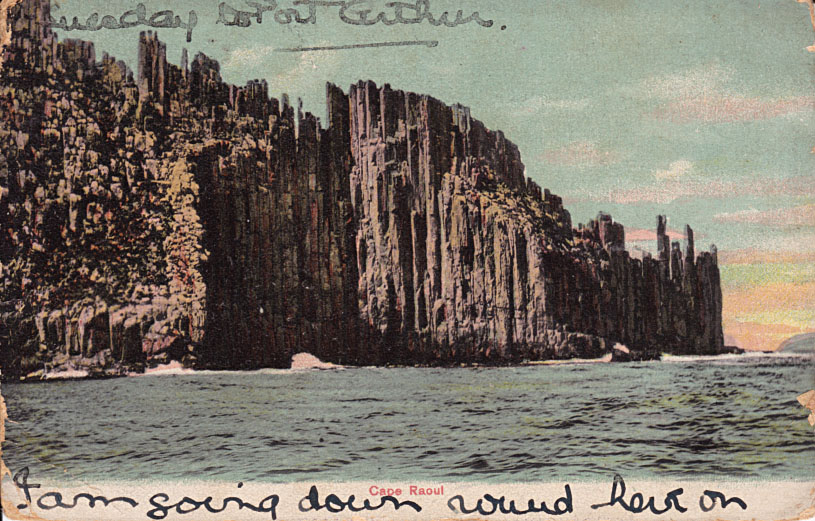 Tuesday to Port Arthur.
Cape Raoul
I am going down round here on